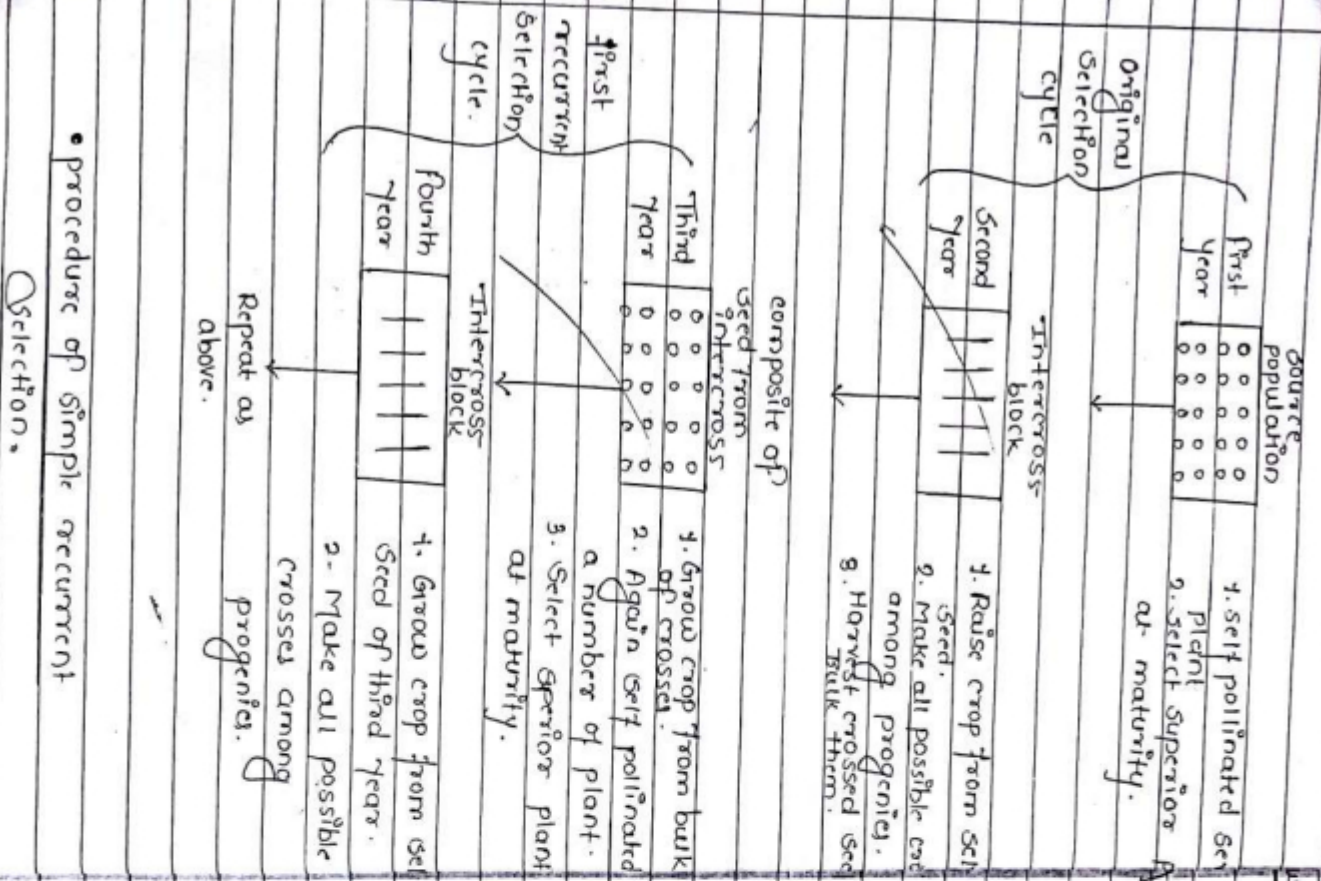 Source
population
Original
Selection
cycle
First
year
1. Self pollinated
plant
2. Select Superior
at maturity.
Intercross-
block
Second
year
1. Raise crop from
Seed.
2. Make all possible
among progenies.
3. Harvest crossed
Bulk them.
composite of
seed from
intercross
first
recurrent
Selection
cycle.
Third
year
1. Grow crop from bulk
of crosses.
2. Again self pollinated
a number of plant.
3. Select sperior plant
at maturity.
Intercross-
block
Fourth
year
1. Grow crop from
Seed of third year.
2- Make all possible
crosses among
progenies.
Repeat as
above.
• procedure of simple recurrent
Selection.